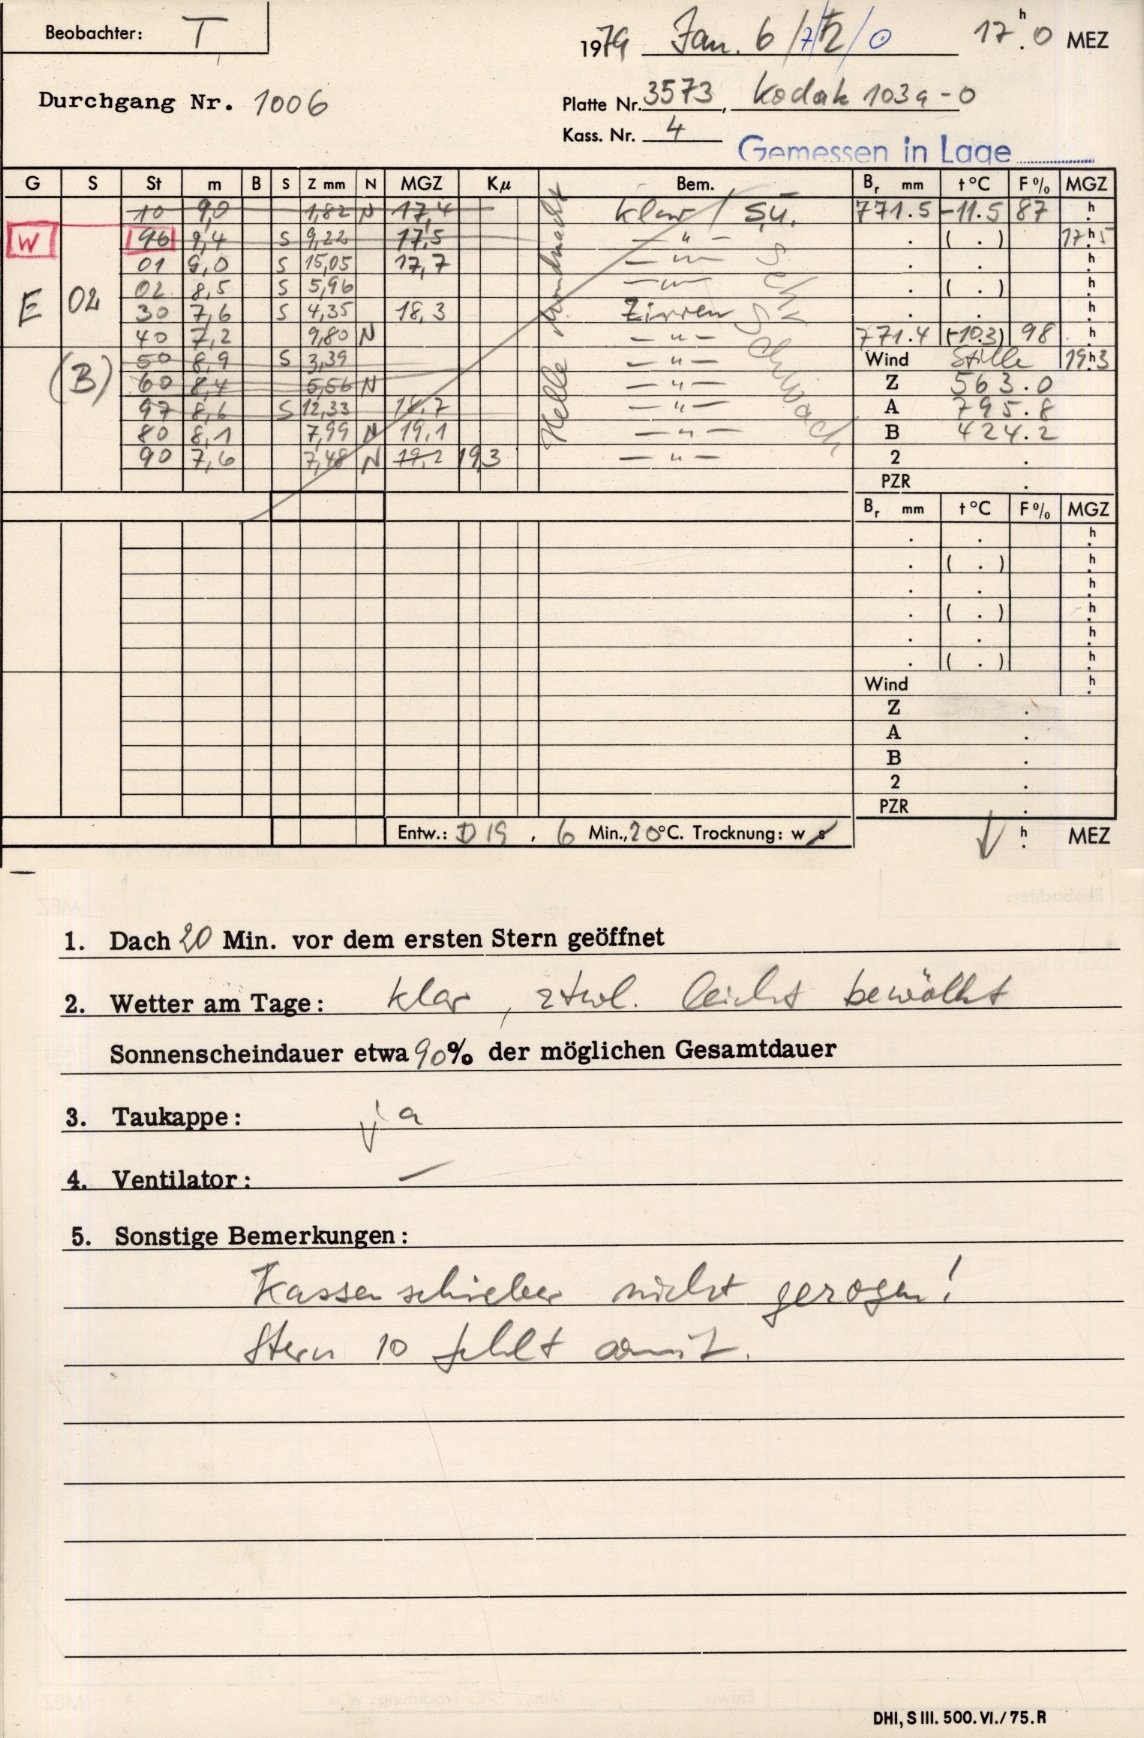 Beobachter: T
1979 Jan. 6 / / 0 17h.0 MEZ
Durchgang Nr. 1006
Platte Nr. 3573, Kodak 103a-0
Kass. Nr. 4
Gemessen in Lage
G S St m B S Z mm N MGZ Kμ Bem. Br mm t°C F% MGZ
10 9,0 1,82 N 17,4 klar / Sü. 771.5 -11.5 87 h
W 96 9,4 S 9,22 17,5 — " — . ( . ) 17h5
01 9,0 S 15,05 17,7 — " — . . h
02 8,5 S 5,96 — " — . ( . ) h
E 02 30 7,6 S 4,35 18,3 Zirren . . h
40 7,2 9,80 N — " — 771.4 (-10.3) 98 h
50 8,9 S 3,39 — " — Wind Stille 19h3
(B) 60 8,4 5,56 N — " — Z 563.0
97 8,6 S 12,33 18,7 — " — A 795.8
80 8,1 7,99 N 19,1 — " — B 424.2
90 7,6 7,48 N 19,2 19,3 — " — 2 .
PZR .
Helle Mondnacht
sehr schwach
Br mm t°C F% MGZ
. . h
. ( . ) h
. . h
. ( . ) h
. . h
. ( . ) h
Wind h
Z .
A .
B .
2 .
PZR .
Entw.: D19 , 6 Min., 20°C. Trocknung: w s h MEZ
1. Dach 20 Min. vor dem ersten Stern geöffnet
2. Wetter am Tage: klar, ztwl. leicht bewölkt
Sonnenscheindauer etwa 90% der möglichen Gesamtdauer
3. Taukappe: ja
4. Ventilator: —
5. Sonstige Bemerkungen:
Kassenschieber nicht gezogen!
Stern 10 fehlt somit.
DHI, S III. 500. VI./75. R